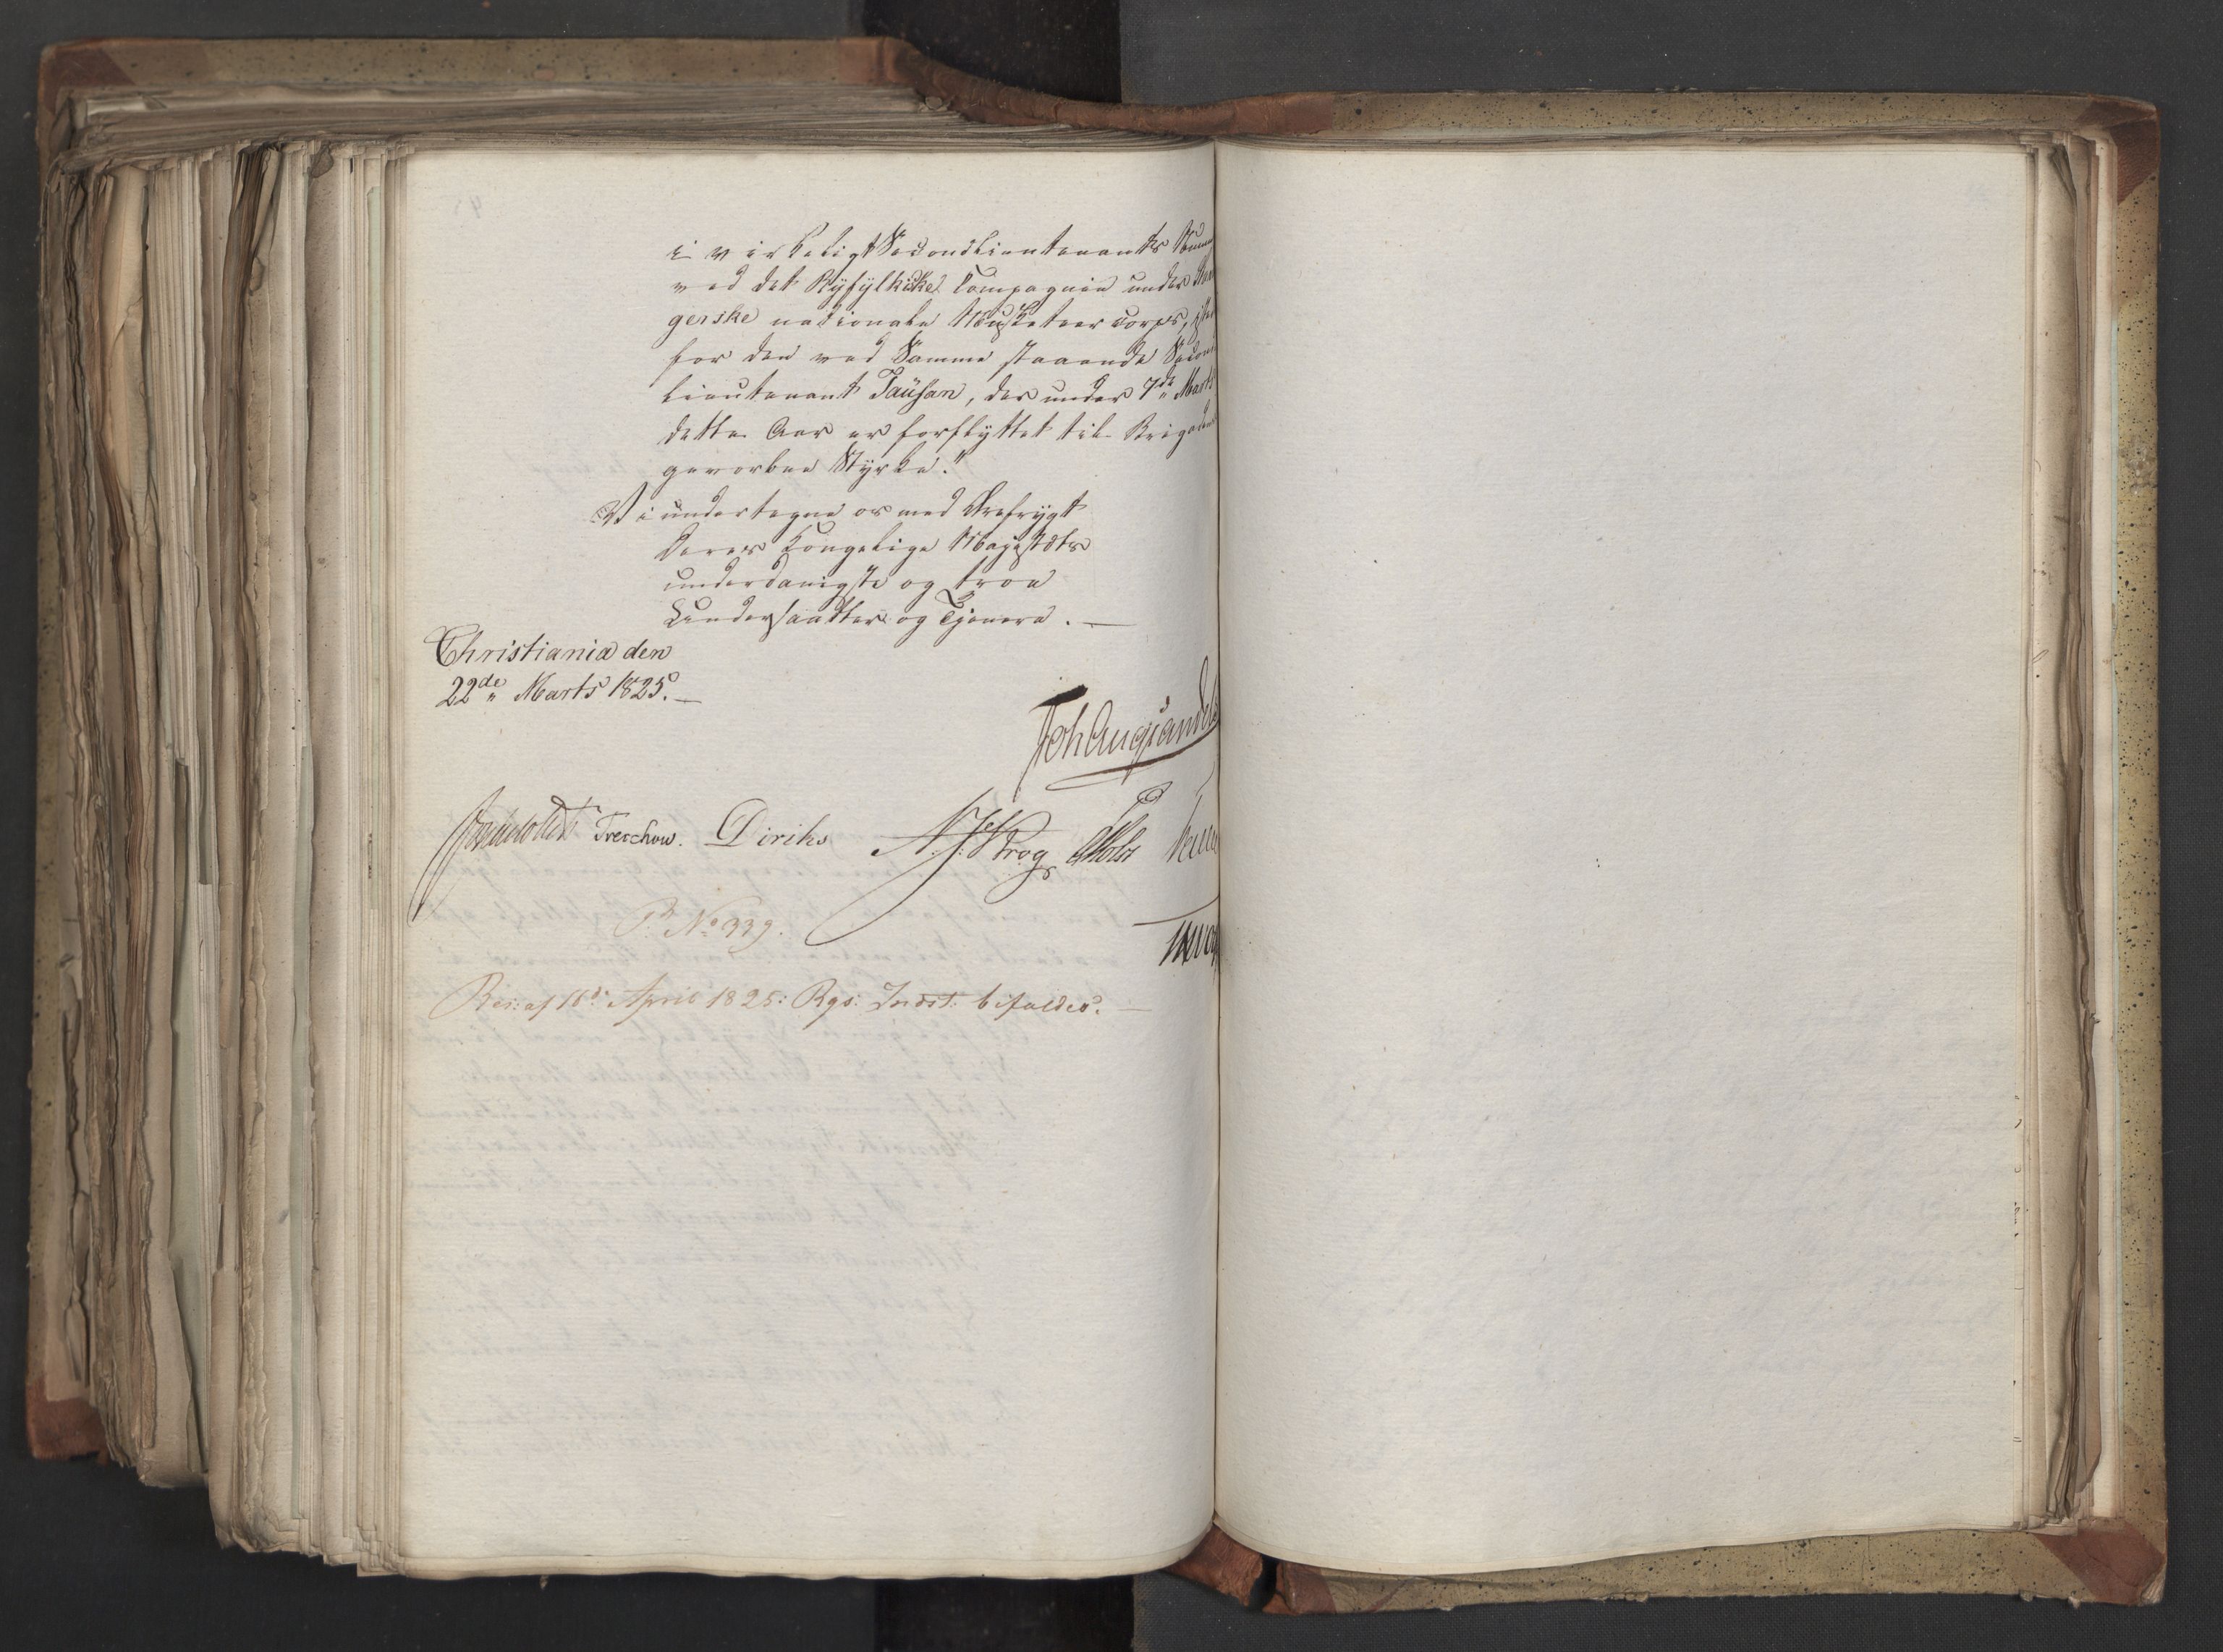 i virkeligt Secondlieutenants Numm
ved det Ryfylkiske Compagnie under Stavan
gerske nationale Musketeer Corps, istæ
for den ved Samme staaende Second
lieutenant Tausan, der under 7de Marts
dette Aar er forflyttet til Brigadens
gevorbne Styrke."
Vi undertegne os med Ærefrygt
Deres Kongelige Majestæts
underdanigste og troe
Undersaatter og Tjenere. —
Christiania den
22de Marts 1825. —
Joh Aug Sandels
Sommerhielm Treschow. Diriks N. J. Krog Holst
P. No 339.
Res: af 16de April 1825: Rgs: Indst: bifaldes. —